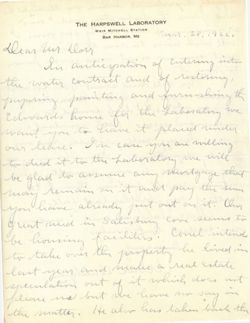 THE HARPSWELL LABORATORY
WEIR MITCHELL STATION
BAR HARBOR, ME
Dear Mr Dorr
In anticipation of entering into
the water contract and of restoring,
papering, painting and furnishing the
Edwards home for the Laboratory we
want you to have it placed under
our lease. In case you are willing
to deed it to the Laboratory we will
be glad to assume any mortgage that
may remain on it and pay the sum
you have already put out on it. Our
great need in Salisbury Cove seems to
be housing facilities. intend
to take over the property he lived in
last year and make a real estate
speculation out of it which does not
please us but we have no say in
the matter. He also has taken back the